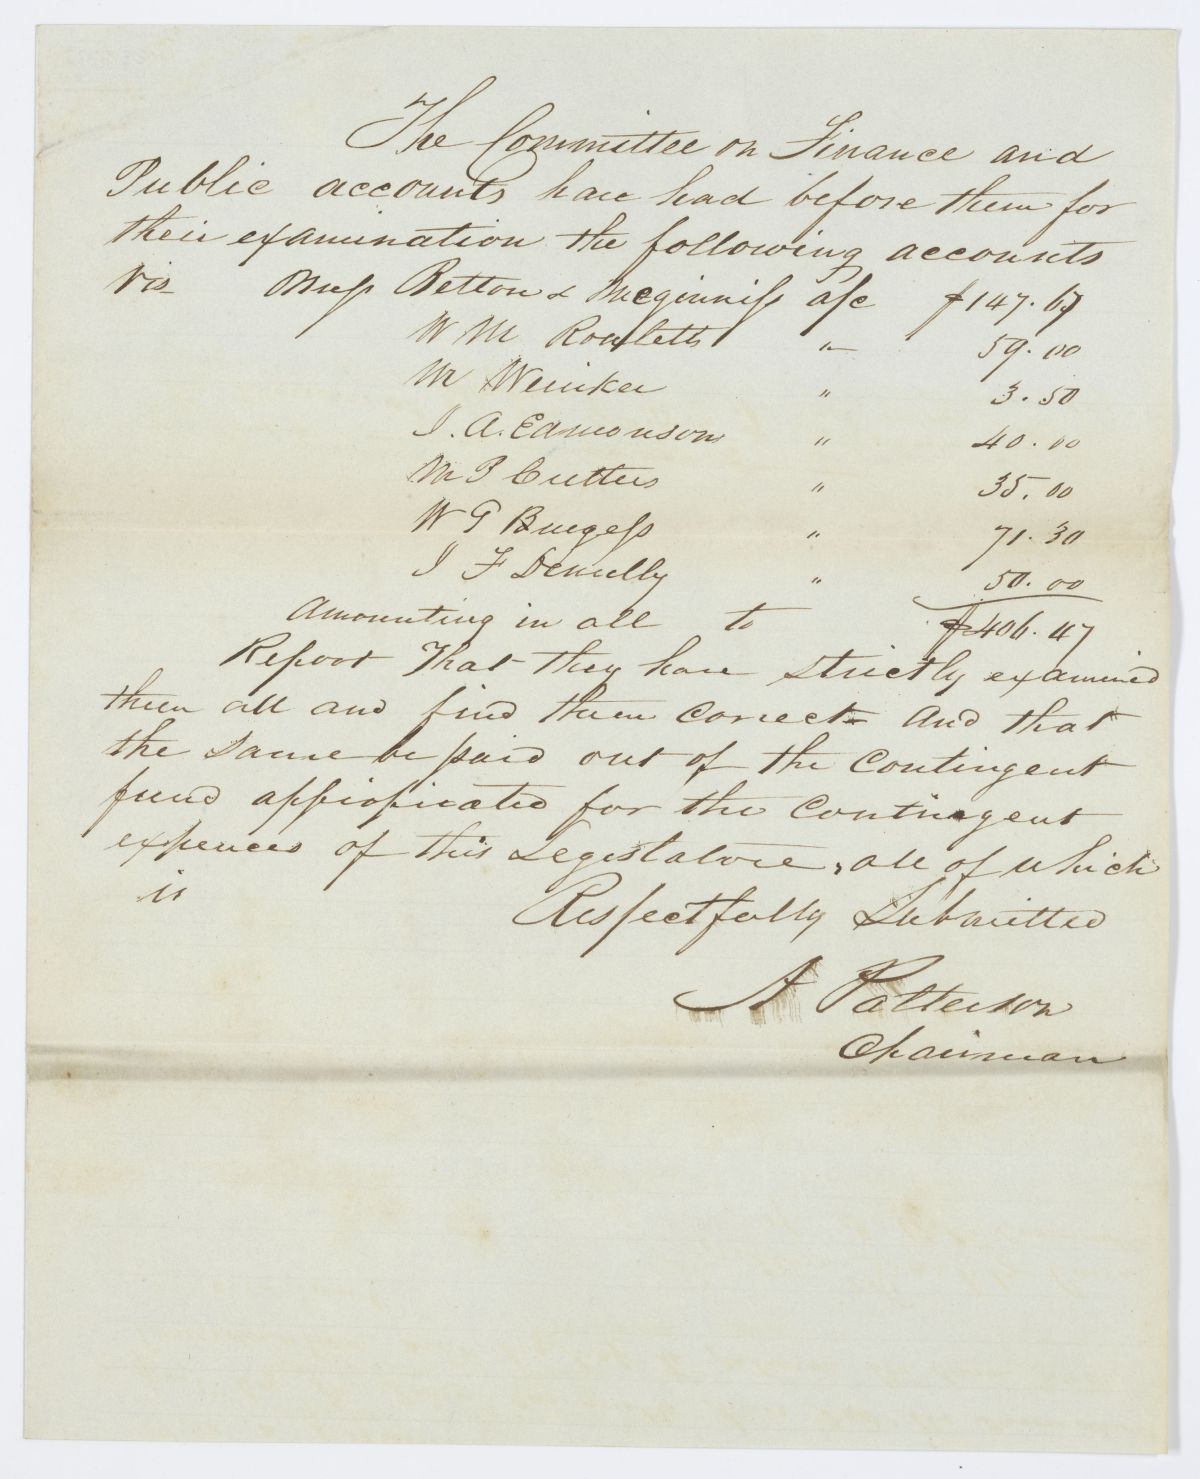 The Committee on Finance and
Public accounts have had before them for
their examination the following accounts
Vis Mess Betton & Mcginniss a/c $147.67
W M Rowletts " 59.00
M Weinker " 3.50
J. A. Edmonsom " 40.00
M P Cutters " 35.00
W G Burgess " 71.30
J F Demilly " 50.00
Amounting in all to $406.47
Report That they have strictly examined
them all and find them correct And that
the same be paid out of the Contingent
fund appropriated for the Contingent
expences of this Legislature, all of which
is Respectfully Submitted
A Patterson
Chairman